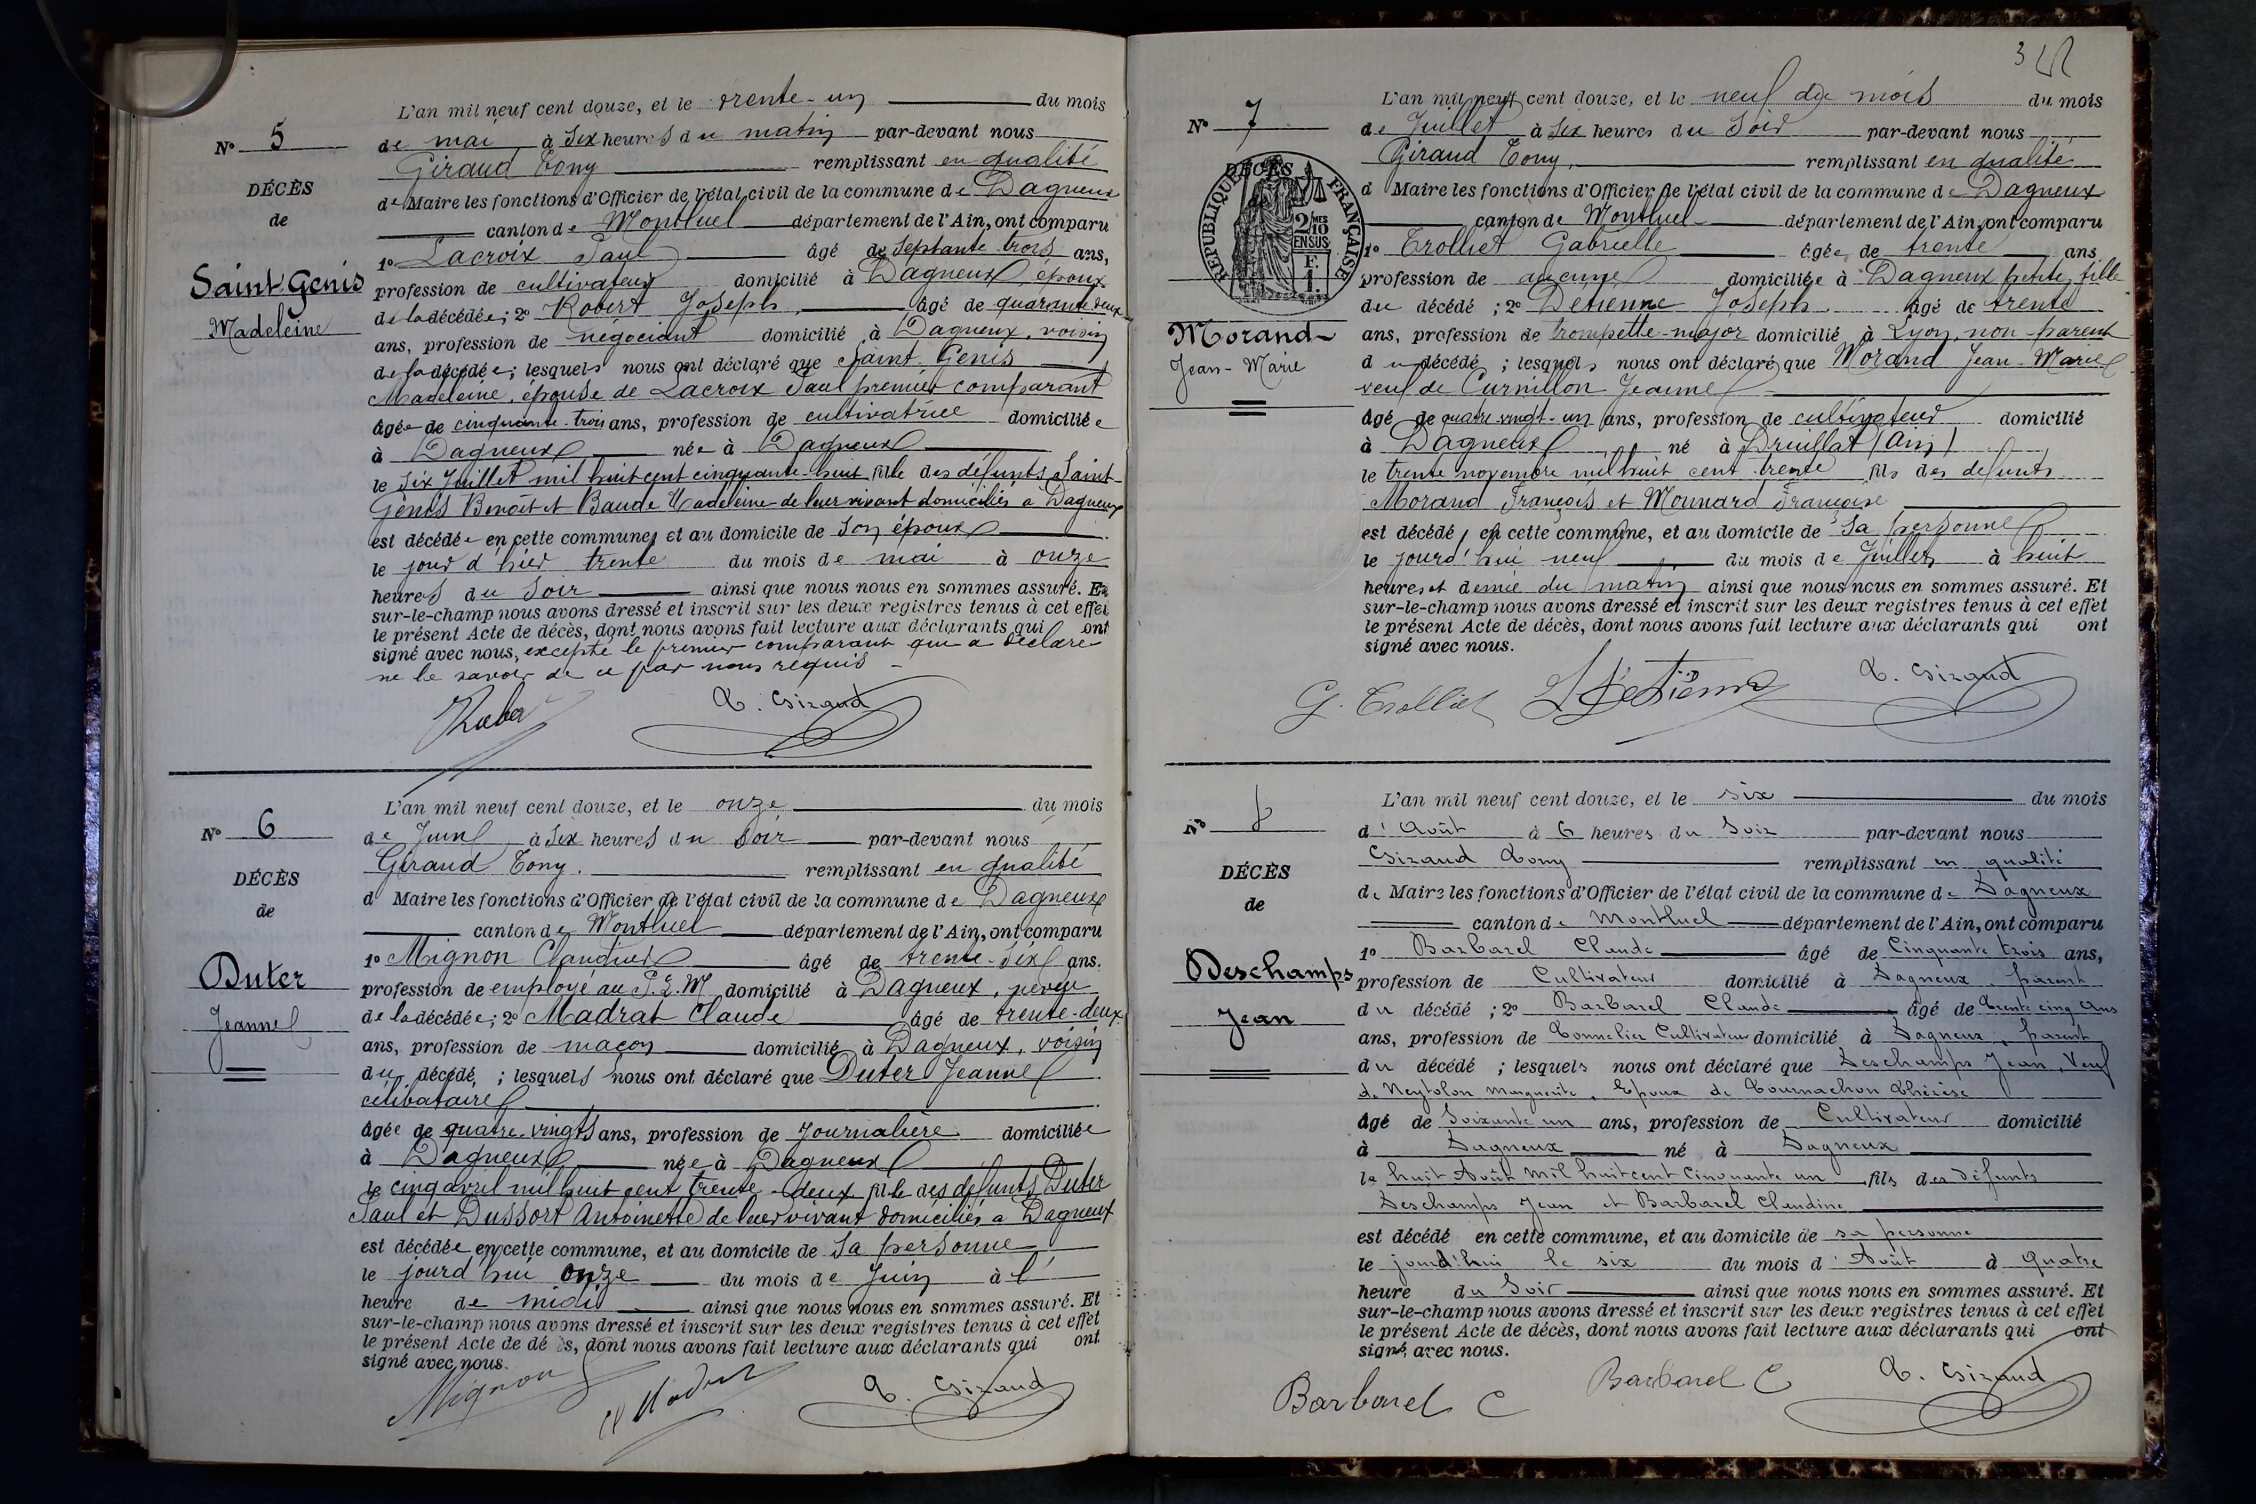 L'an mil neuf cent douze, et le trente-un du mois
N° 5
de mai à six heures du matin par-devant nous
Giraud Tony remplissant en qualité
DÉCÈS
de Maire les fonctions d'Officier de l'état civil de la commune de Dagneux
de
canton de Montluel département de l'Ain, ont comparu
1° Lacroix Paul âgé de septante trois ans,
Saint-Genis
profession de cultivateur domicilié à Dagneux, époux
Madeleine
de la décédée; 2° Robert Joseph, âgé de quarante deux
ans, profession de négociant domicilié à Dagneux, voisin
de la décédée; lesquels nous ont déclaré que Saint-Genis
Madeleine, épouse de Lacroix Paul premier comparant
âgée de cinquante-trois ans, profession de cultivatrice domiciliée
à Dagneux née à Dagneux
le six Juillet mil huit cent cinquante-huit fille des défunts Saint-
Genis Benoît et Baude Madeleine de leur vivant domiciliés à Dagneux
est décédée en cette commune, et au domicile de son époux
le jour d'hier trente du mois de mai à onze
heures du soir ainsi que nous nous en sommes assuré. Et
sur-le-champ nous avons dressé et inscrit sur les deux registres tenus à cet effet
le présent Acte de décès, dont nous avons fait lecture aux déclarants qui ont
signé avec nous, excepté le premier comparant qui a déclaré
ne le savoir de ce par nous requis
Robert T. Giraud
L'an mil neuf cent douze, et le onze du mois
N° 6
de Juin à six heures du soir par-devant nous
Giraud Tony. remplissant en qualité
DÉCÈS
d Maire les fonctions d'Officier de l'état civil de la commune de Dagneux
de
canton de Montluel département de l'Ain, ont comparu
1° Mignon Claudius âgé de trente-six ans.
Duter
profession de employé au P. L. M domicilié à Dagneux, neveu
Jeanne
de la décédée; 2° Madrat Claude âgé de trente-deux
ans, profession de maçon domicilié à Dagneux, voisin
du décédé; lesquels nous ont déclaré que Duter Jeanne
célibataire
âgée de quatre-vingts ans, profession de Journalière domiciliée
à Dagneux née à Dagneux
le cinq avril mil huit cent trente-deux fille des défunts Duter
Paul et Dussort Antoinette de leur vivant domiciliés à Dagneux
est décédée en cette commune, et au domicile de sa personne
le jourd'hui onze du mois de Juin à l'
heure de midi ainsi que nous nous en sommes assuré. Et
sur-le-champ nous avons dressé et inscrit sur les deux registres tenus à cet effet
le présent Acte de dé ès, dont nous avons fait lecture aux déclarants qui ont
signé avec nous.
Mignon Madrat T. Giraud
3
L'an mil neuf cent douze, et le neuf du mois du mois
N° 7
de Juillet à six heures du soir par-devant nous
Giraud Tony, remplissant en qualité
DÉCÈS
RÉPUBLIQUE FRANÇAISE
2/10 MES EN SUS
F. 1.
d Maire les fonctions d'Officier de l'état civil de la commune de Dagneux
canton de Montluel département de l'Ain, ont comparu
1° Trolliet Gabrielle âgée de trente ans
profession de aucune domiciliée à Dagneux petite fille
du décédé; 2° Detienne Joseph âgé de trente
Morand
ans, profession de trompette-major domicilié à Lyon, non-parent
Jean-Marie
du décédé; lesquels nous ont déclaré que Morand Jean-Marie
veuf de Curnillon Jeanne
âgé de quatre vingt-un ans, profession de cultivateur domicilié
à Dagneux né à Druillat (Ain)
le trente novembre mil huit cent trente fils des défunts
Morand François et Mounard Françoise
est décédé, en cette commune, et au domicile de sa personne
le jourd'hui neuf du mois de Juillet à huit
heures et demie du matin ainsi que nous nous en sommes assuré. Et
sur-le-champ nous avons dressé et inscrit sur les deux registres tenus à cet effet
le présent Acte de décès, dont nous avons fait lecture aux déclarants qui ont
signé avec nous.
G. Trolliet Detienne T. Giraud
L'an mil neuf cent douze, et le six du mois
N° 8
d'Août à 6 heures du soir par-devant nous
Giraud Tony remplissant en qualité
DÉCÈS
de Maire les fonctions d'Officier de l'état civil de la commune de Dagneux
de
canton de Montluel département de l'Ain, ont comparu
1° Barbarel Claude âgé de Cinquante trois ans,
Deschamps
profession de Cultivateur domicilié à Dagneux, parent
Jean
du décédé; 2° Barbarel Claude âgé de trente cinq ans
ans, profession de Tonnelier Cultivateur domicilié à Dagneux, parent
du décédé; lesquels nous ont déclaré que Deschamps Jean, Veuf
de Neytolon Marguerite, Epoux de Tournachon Thérèse
âgé de Soixante un ans, profession de Cultivateur domicilié
à Dagneux né à Dagneux
le huit Août mil huit cent Cinquante un fils des défunts
Deschamps Jean et Barbarel Claudine
est décédé en cette commune, et au domicile de sa personne
le jourd'hui le six du mois d'Août à quatre
heure du Soir ainsi que nous nous en sommes assuré. Et
sur-le-champ nous avons dressé et inscrit sur les deux registres tenus à cet effet
le présent Acte de décès, dont nous avons fait lecture aux déclarants qui ont
signé avec nous.
Barbarel C Barbarel C T. Giraud